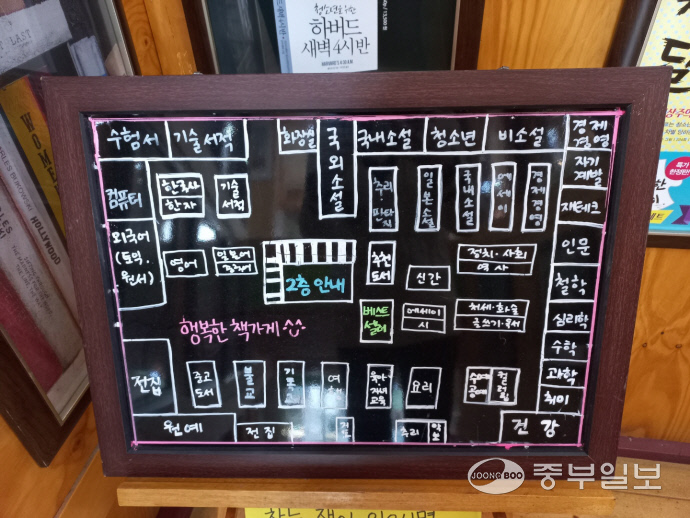 하버드
새벽 4시반
수험서
기술서적
화장실
국외소설
국내소설
청소년
비소설
경제
경영
컴퓨터
한국사
한자
기술
서적
추리·
판타지
일본소설
국내소설
에세이
경제경영
자기
계발
재테크
외국어
(토익,
원서)
영어
일본어
중국어
2층 안내
추천
도서
신간
정치·사회
역사
인문
철학
행복한 책가게
베스트
셀러
에세이
시
처세·화술
글쓰기·독서
심리학
수학
전집
중고
도서
불교
기독교
여행
육아
자녀
교육
요리
수예
공예
컬러링
과학
취미
원예
전집
지도
요리
건강
JOONG BOO
중부일보